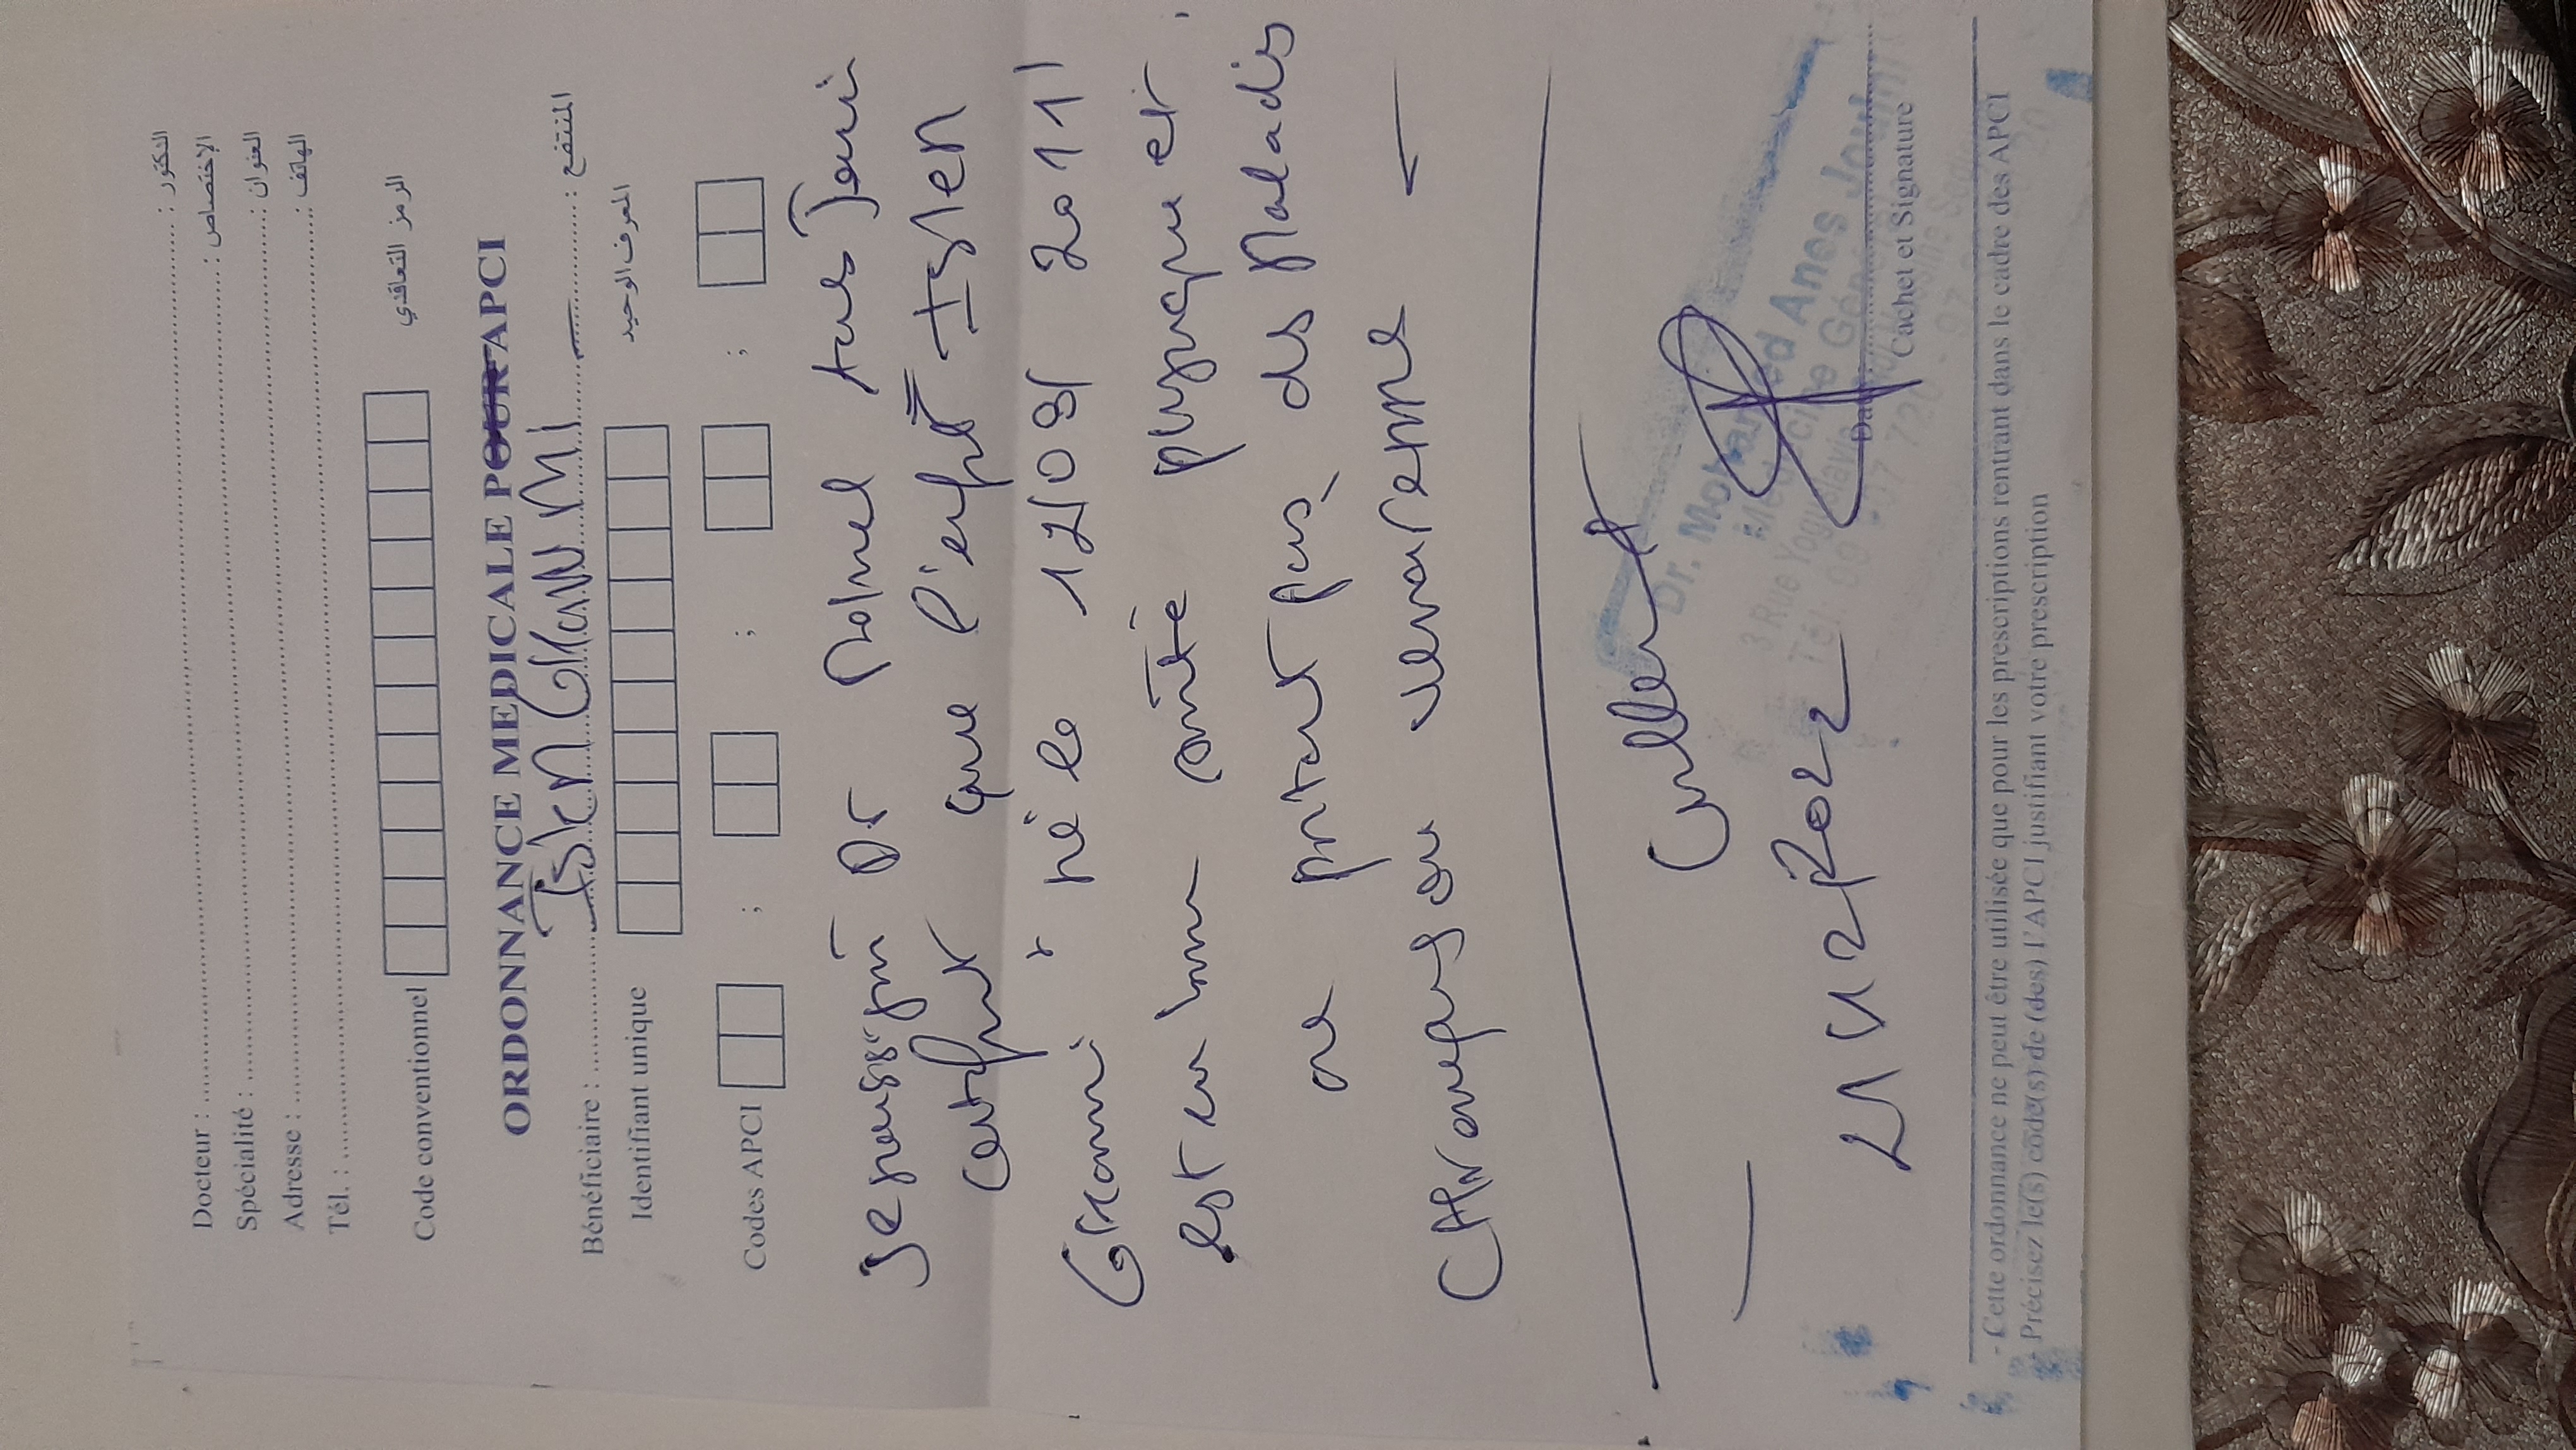 Docteur : الدكتور :
Spécialité : الإختصاص :
Adresse : العنوان :
Tél. : الهاتف :
Code conventionnel الرمز التعاقدي
ORDONNANCE MEDICALE POUR APCI
Bénéficiaire : Islem GHANMI المنتفع :
Identifiant unique المعرف الوحيد
Codes APCI ; ; ;
Je soussigné Dr Mohmed Anes Jouini
certifie que l'enfant Islem
Ghanmi, né le 12/09/2011
est en bonne santé physique et
ne portant pas, des Maladies
CHroniques ou
Dr. Mohamed Anes Jouini
Médecine Générale
3 Rue Yougoslavie
Tél.
Date
Cachet et Signature
2022
- Cette ordonnance ne peut être utilisée que pour les prescriptions rentrant dans le cadre des APCI
Précisez le(s) code(s) de (des) l'APCI justifiant votre prescription